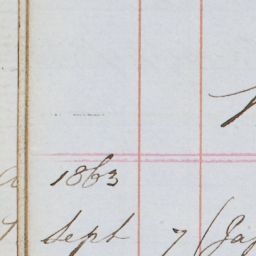 1863
Sept 7 (Ja